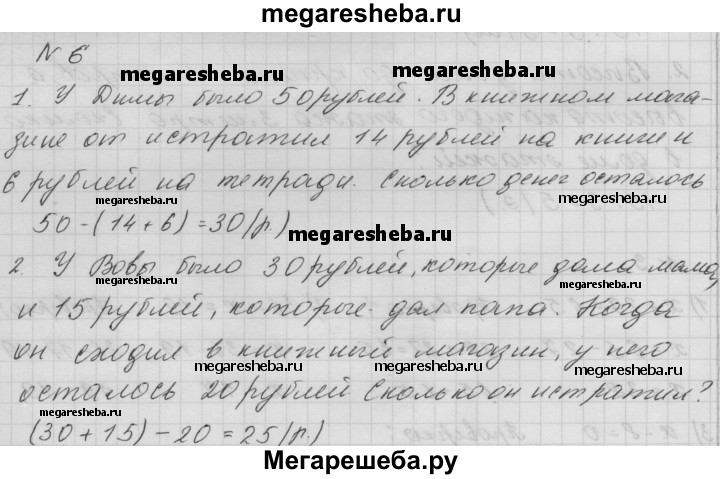 megaresheba.ru
N 6
megaresheba.ru megaresheba.ru
1. У Димы было 50 рублей. В книжном мага-
зине от истратил 14 рублей на книги и
6 рублей на тетради. Сколько денег осталось
megaresheba.ru megaresheba.ru
50-(14+6)=30(р.)
megaresheba.ru
2. У Вовы было 30 рублей, которые дала мама,
megaresheba.ru
и 15 рублей, которые дал папа. Когда
он сходил в книжный магазин, у него
осталось 20 рублей Сколько он истратил?
megaresheba.ru megaresheba.ru
(30+15)-20=25(р.)
Мегарешеба.ру